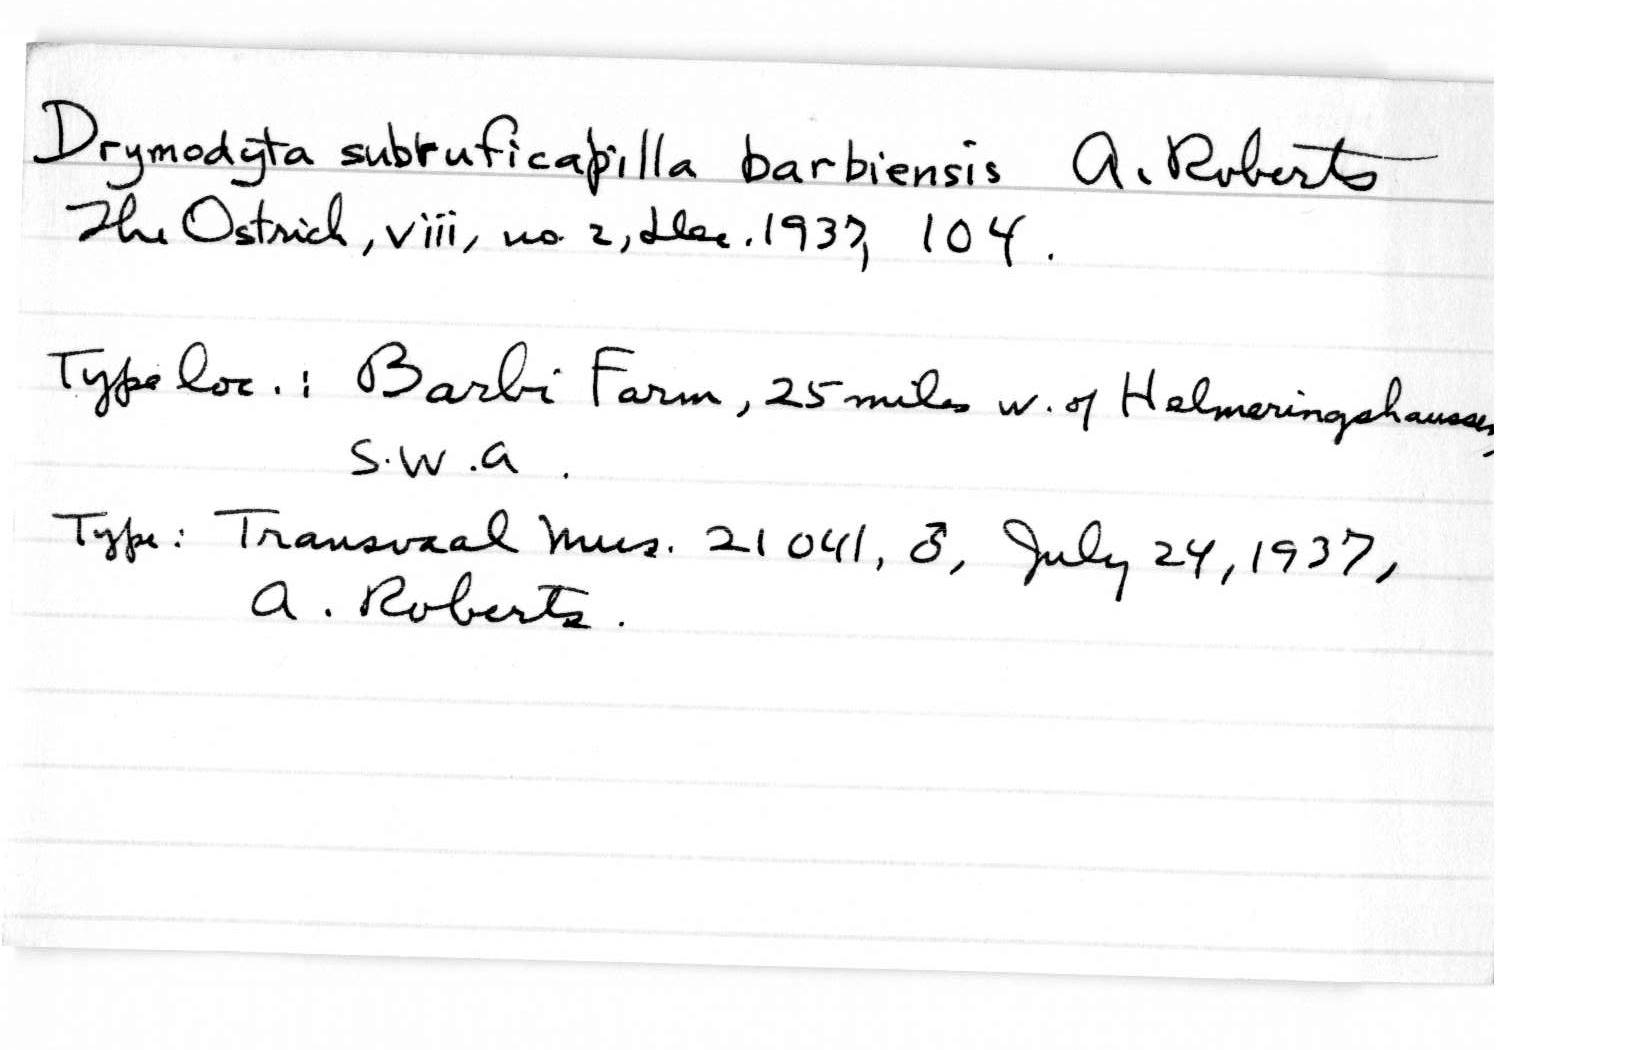 Drymodyta subruficapilla barbiensis A. Roberts
The Ostrich, viii, no. 2, Dec. 1937, 104.
Type loc.: Barbi Farm, 25 miles w. of Helmeringshaussen,
S.W.A.
Type: Transvaal Mus. 21041, ♂, July 24, 1937,
A. Roberts.